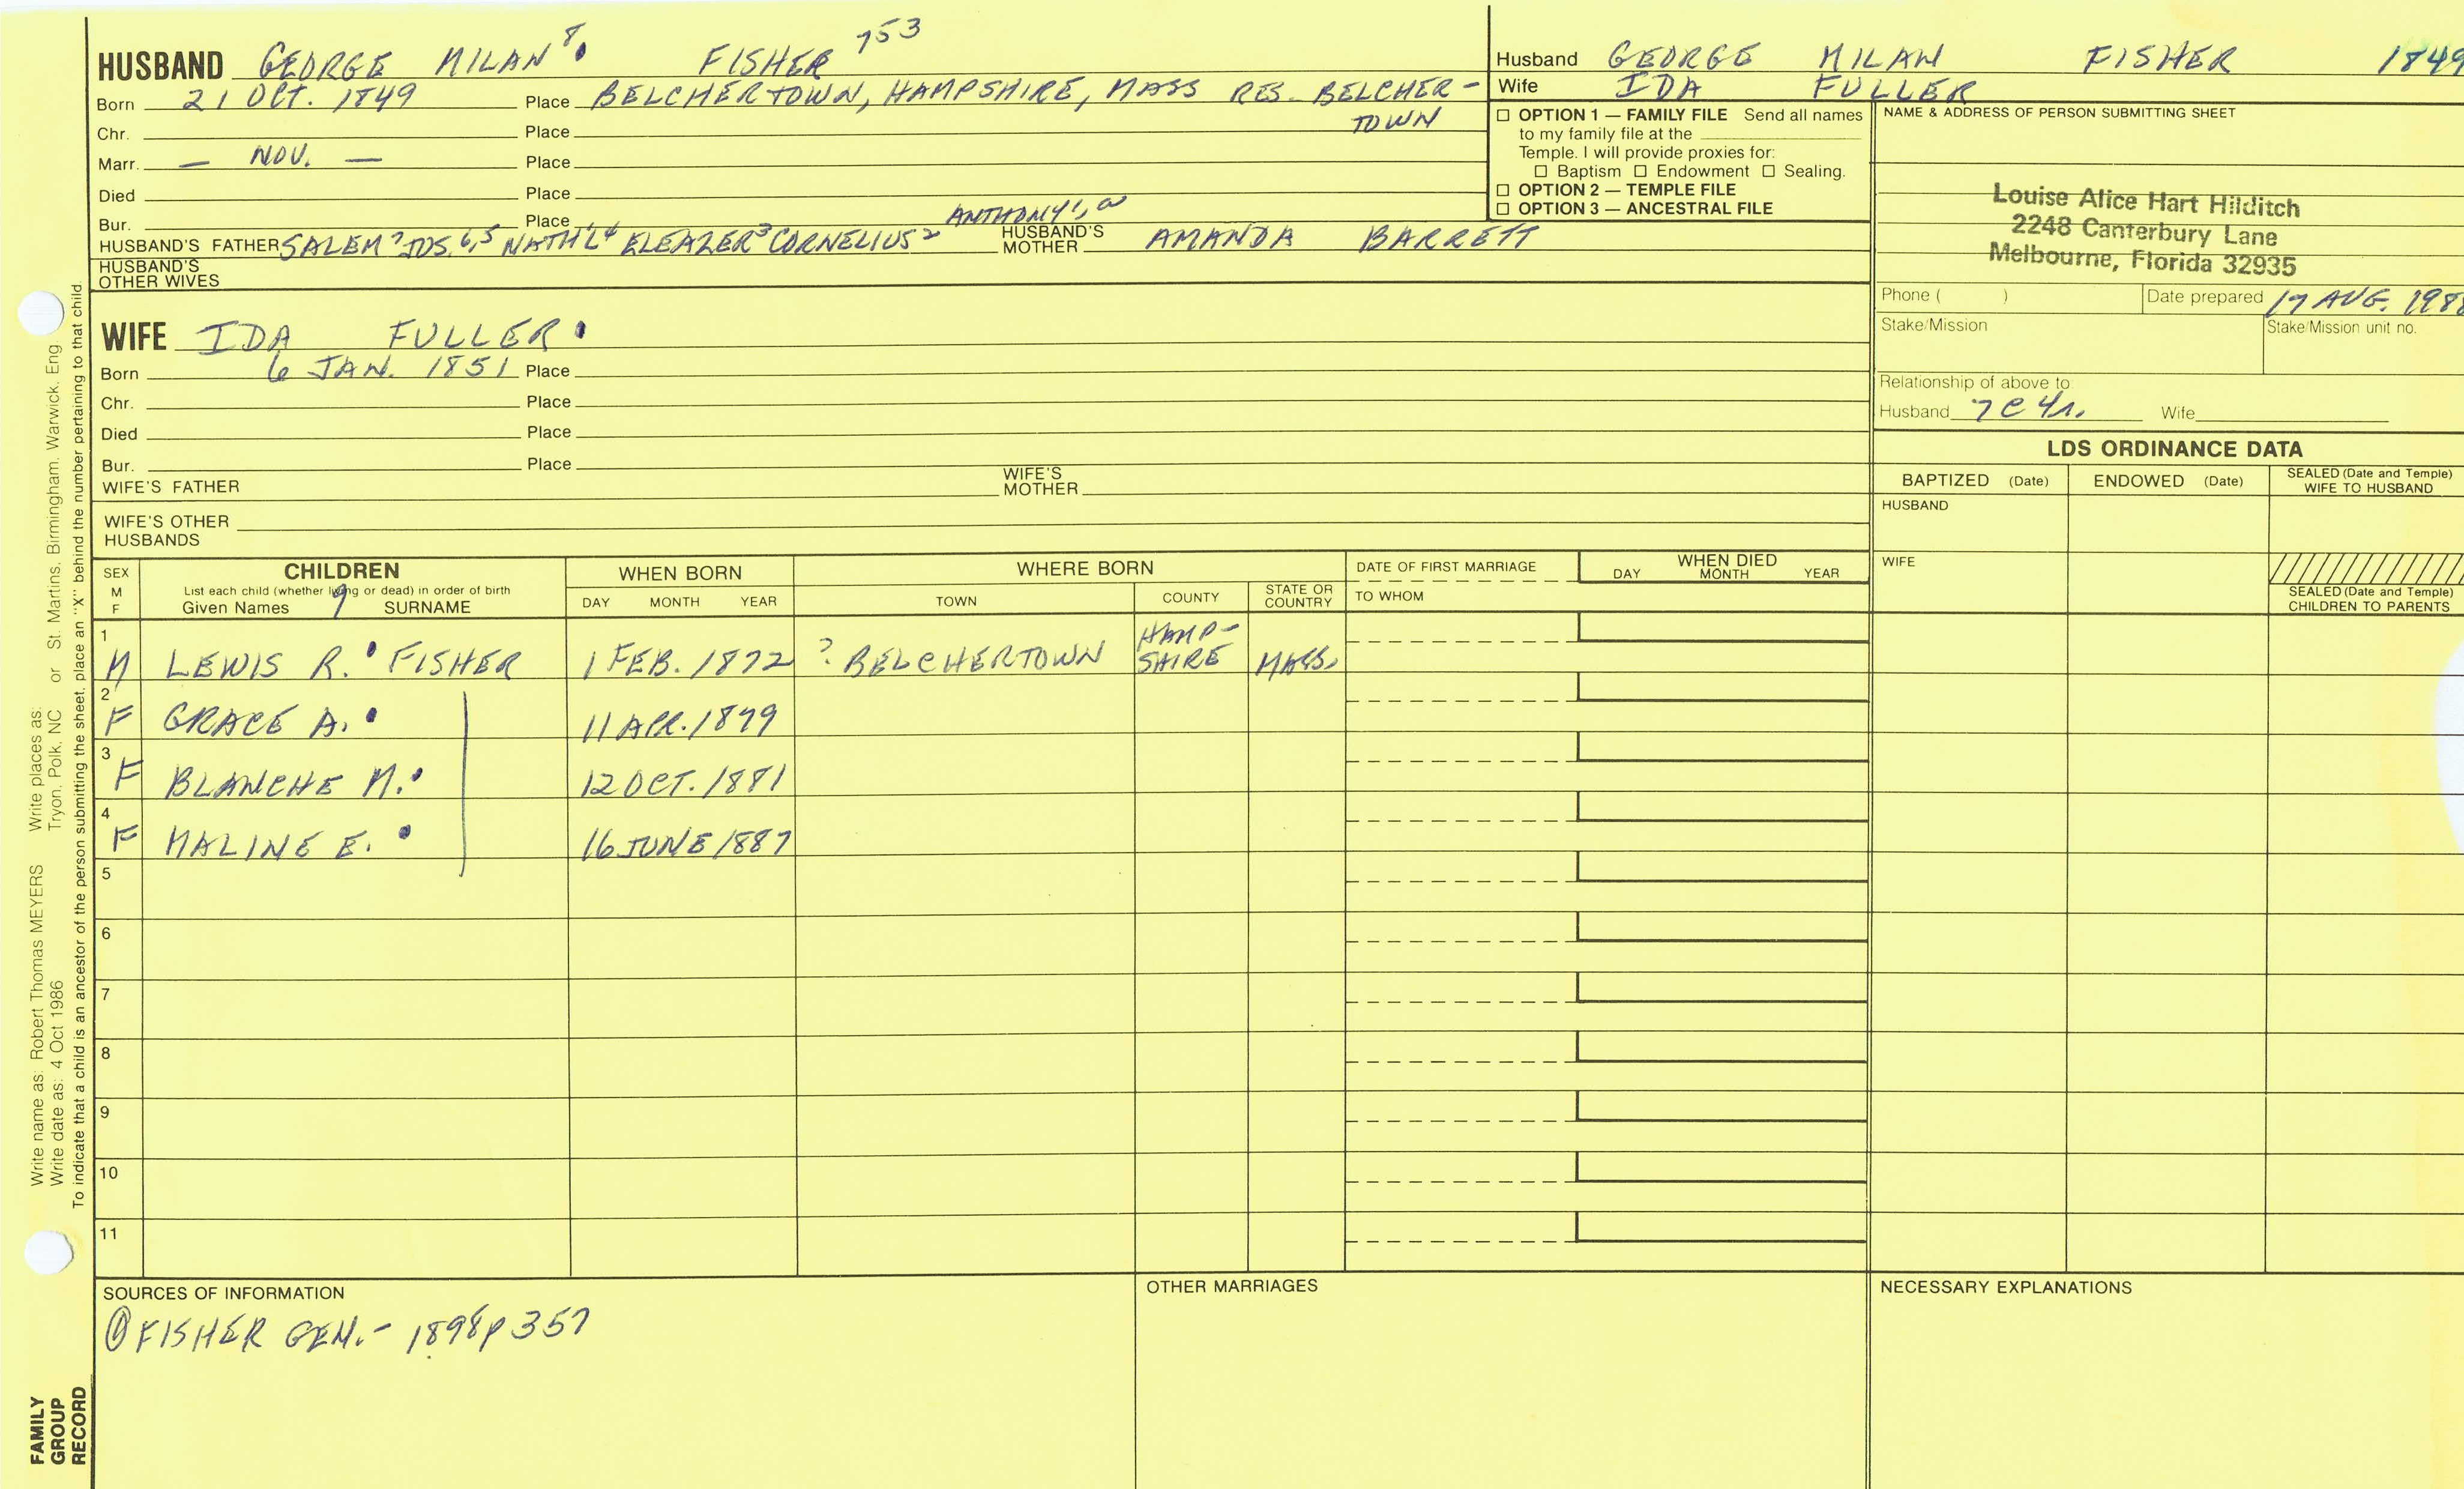 HUSBAND GEORGE MILAN 8 FISHER 753
Born 21 OCT. 1849 Place BELCHERTOWN, HAMPSHIRE, MASS RES. BELCHER-
TOWN
Chr. Place
Marr. — NOV. — Place
Died Place
Bur. Place ANTHONY 1,
HUSBAND'S FATHER SALEM 7 JOS. 6,5 NATH'L 4 ELEAZER 3 CORNELIUS 2 HUSBAND'S MOTHER AMANDA BARRETT
HUSBAND'S OTHER WIVES
WIFE IDA FULLER
Born 6 JAN. 1851 Place
Chr. Place
Died Place
Bur. Place
WIFE'S FATHER WIFE'S MOTHER
WIFE'S OTHER HUSBANDS
Husband GEORGE MILAN FISHER 1849
Wife IDA FULLER
☐ OPTION 1 — FAMILY FILE Send all names
to my family file at the
Temple. I will provide proxies for:
☐ Baptism ☐ Endowment ☐ Sealing.
☐ OPTION 2 — TEMPLE FILE
☐ OPTION 3 — ANCESTRAL FILE
NAME & ADDRESS OF PERSON SUBMITTING SHEET
Louise Alice Hart Hilditch
2248 Canterbury Lane
Melbourne, Florida 32935
Phone ( ) Date prepared 17 AUG.
Stake/Mission Stake/Mission unit no.
Relationship of above to:
Husband 7 C 4r. Wife
LDS ORDINANCE DATA
BAPTIZED (Date) ENDOWED (Date) SEALED (Date and Temple) WIFE TO HUSBAND
HUSBAND
WIFE
SEALED (Date and Temple) CHILDREN TO PARENTS
SEX M F CHILDREN WHEN BORN WHERE BORN DATE OF FIRST MARRIAGE WHEN DIED
List each child (whether living or dead) in order of birth
Given Names 9 SURNAME DAY MONTH YEAR TOWN COUNTY STATE OR COUNTRY TO WHOM DAY MONTH YEAR
1 M LEWIS R. FISHER 1 FEB. 1872 ? BELCHERTOWN HAMP-SHIRE MASS.
2 F GRACE A. 11 APR. 1879
3 F BLANCHE M. 12 OCT. 1881
4 F MALINE E. 16 JUNE 1887
5
6
7
8
9
10
11
SOURCES OF INFORMATION
① FISHER GEN. - 1898 p 357
OTHER MARRIAGES
NECESSARY EXPLANATIONS
Write name as: Robert Thomas MEYERS Write places as:
Write date as: 4 Oct 1986 Tryon, Polk, NC or St. Martins, Birmingham, Warwick, Eng
To indicate that a child is an ancestor of the person submitting the sheet, place an "X" behind the number pertaining to that child.
FAMILY
GROUP
RECORD